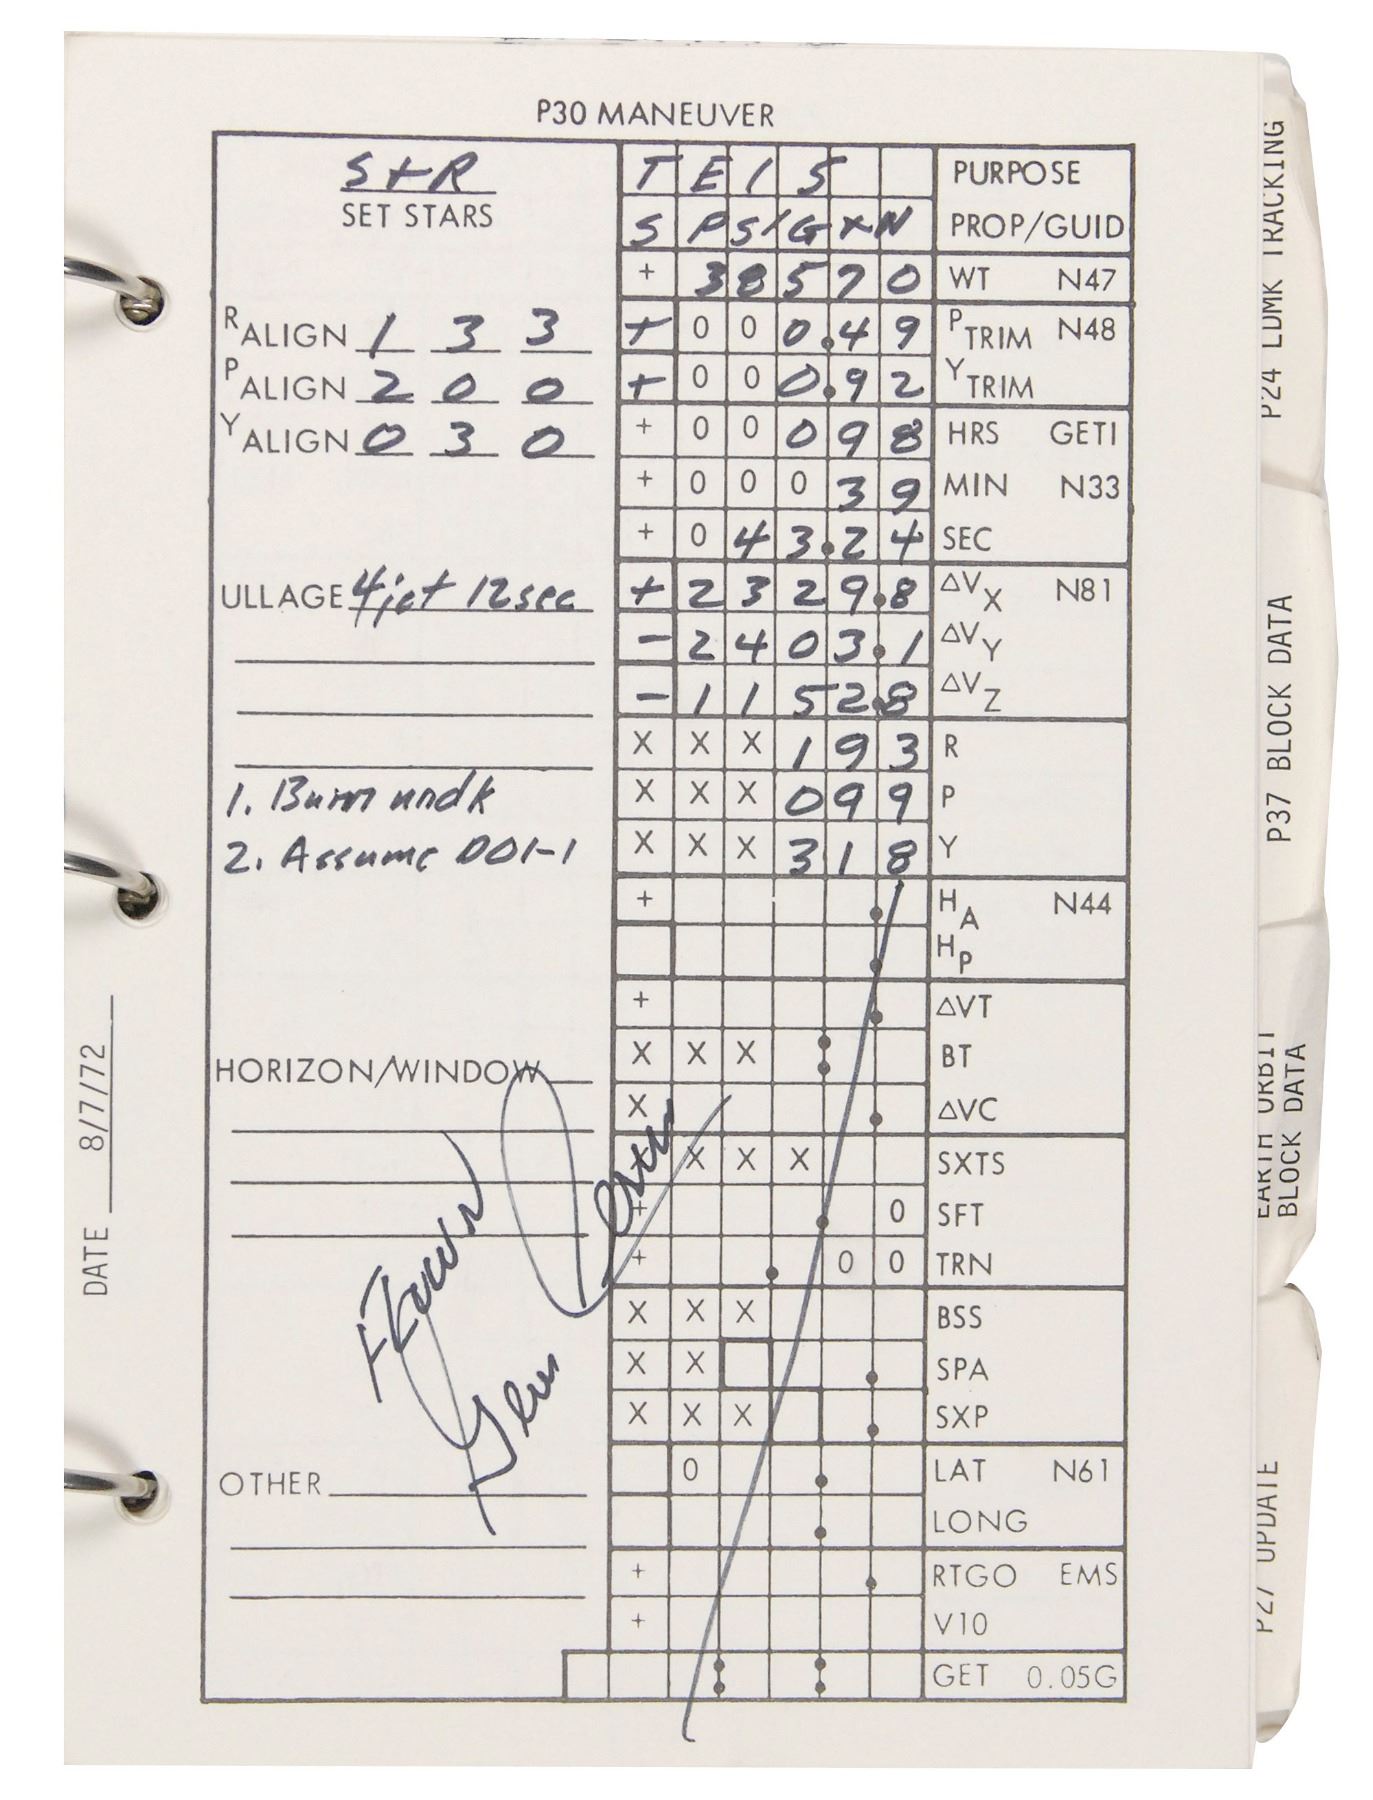 P30 MANEUVER
S+R
SET STARS
R ALIGN 1 3 3
P ALIGN 2 0 0
Y ALIGN 0 3 0
ULLAGE 4jet 12sec
1. Burn undk
2. Assume DOI-1
HORIZON/WINDOW
OTHER
T E I 5 PURPOSE
S P S / G X N PROP/GUID
+ 3 8 5 7 0 WT N47
+ 0 0 0.4 9 P TRIM N48
+ 0 0 0.9 2 Y TRIM
+ 0 0 0 9 8 HRS GETI
+ 0 0 0 3 9 MIN N33
+ 0 4 3.2 4 SEC
+ 2 3 2 9.8 ΔVX N81
- 2 4 0 3.1 ΔVY
- 1 1 5 2.8 ΔVZ
X X X 1 9 3 R
X X X 0 9 9 P
X X X 3 1 8 Y
+ . HA N44
. HP
+ . ΔVT
X X X : BT
X . ΔVC
X X X X SXTS
+ . 0 SFT
+ . 0 0 TRN
X X X BSS
X X . SPA
X X X . SXP
0 . LAT N61
. LONG
+ . RTGO EMS
+ V10
: : GET 0.05G
Gene Cernan
DATE 8/7/72
P24 LDMK TRACKING
P37 BLOCK DATA
EARTH ORBIT
BLOCK DATA
P27 UPDATE